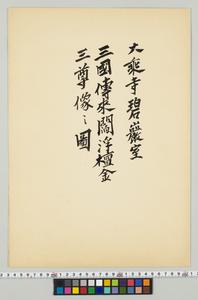 大乘寺碧巖室
三國傳来閻浮檀金
三尊像之圖